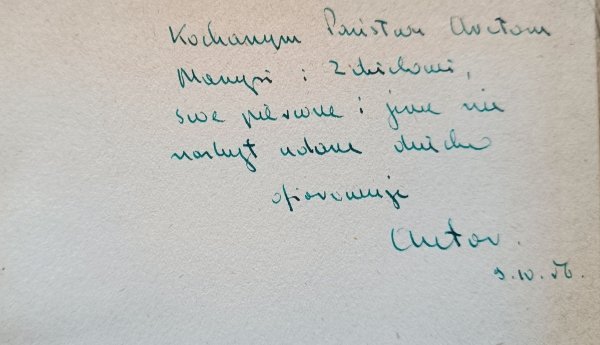 Kochanym Państwu
Marysi i Zdzichowi,
swe pierwsze i jeszcze nie
nazbyt udane dziecko
ofiarowuje
Autor.
9.IV.56.